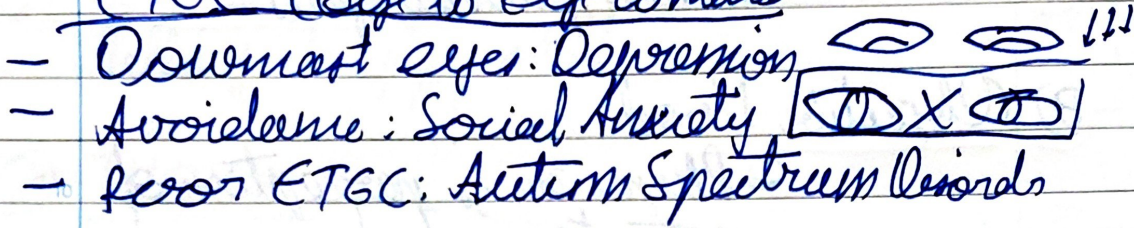 - Downcast eyes: Depression ↓↓↓
- Avoidance: Social Anxiety X
- Poor ETGC: Autism Spectrum Disords